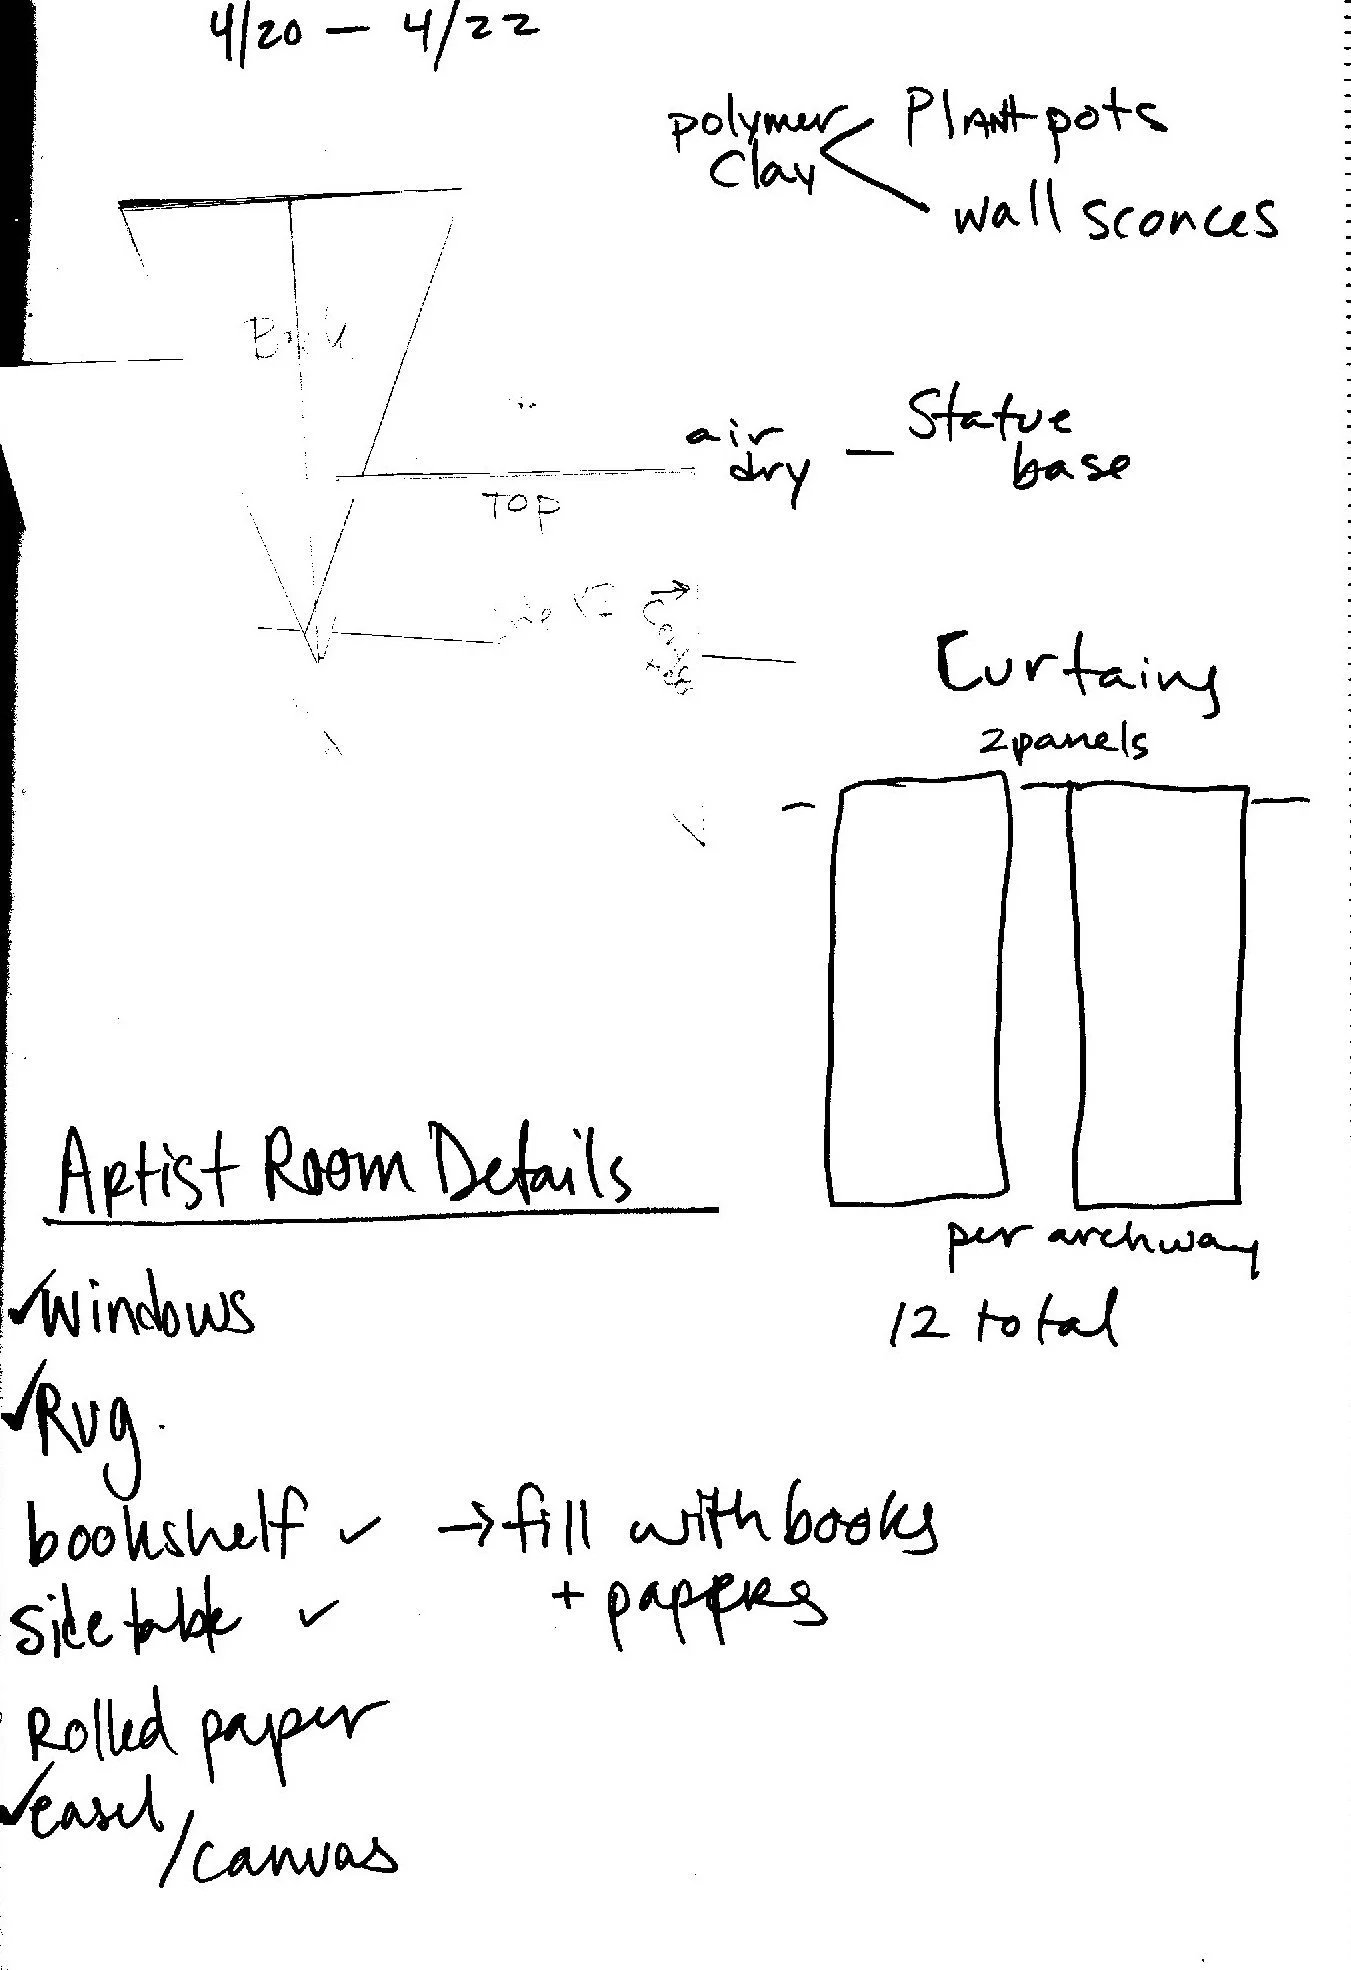 4/20 – 4/22
polymer Plant pots
clay
wall sconces
air Statue
dry – base
TOP
Curtains
2 panels
per archway
12 total
Artist Room Details
✓ windows
✓ Rug
bookshelf ✓ → fill with books
+ papers
side table ✓
Rolled paper
✓ easel
/canvas